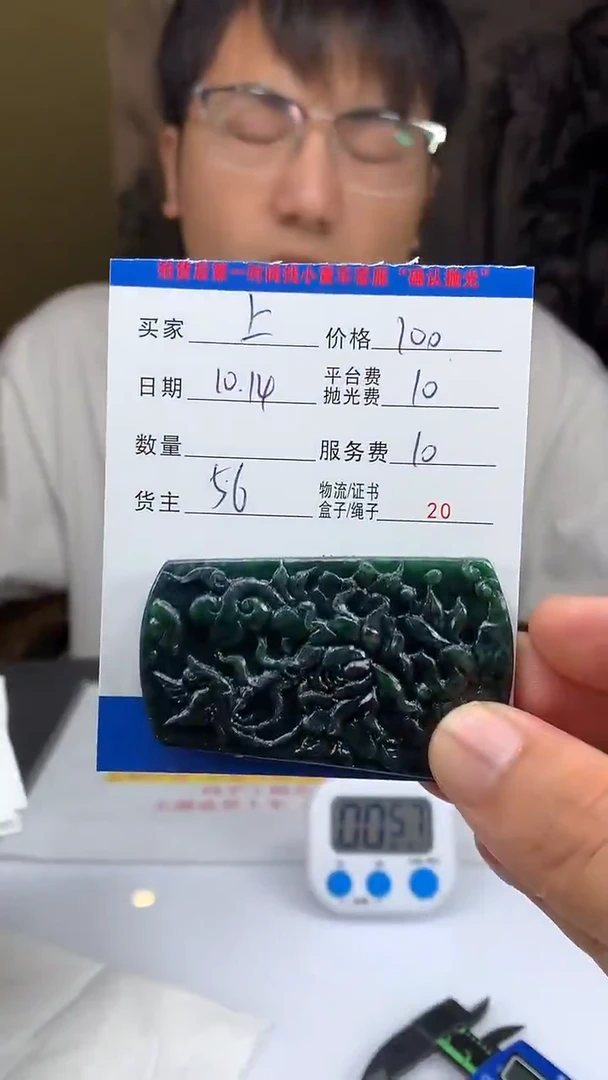 买家 上 价格 100
日期 10.14 平台费 抛光费 10
数量 服务费 10
货主 56 物流/证书 盒子/绳子 20
00 57